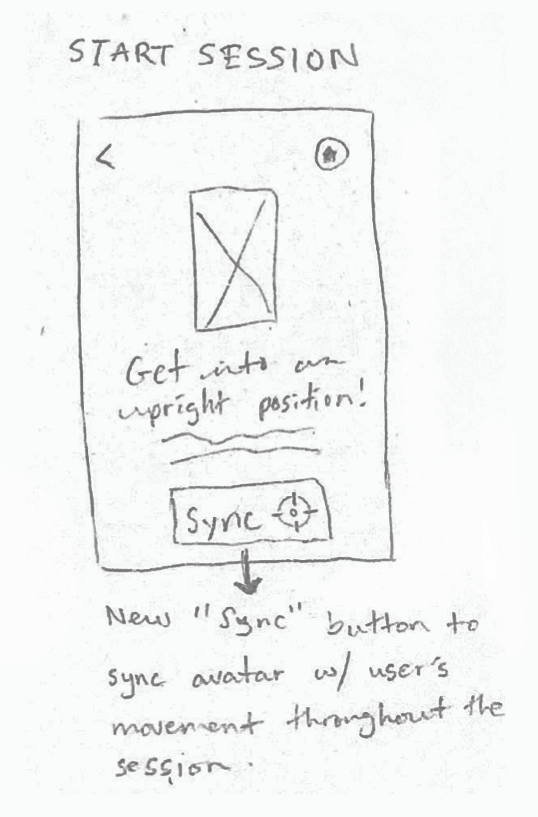 START SESSION
<
Get into an
upright position!
Sync
New "Sync" button to
sync avatar w/ user's
movement throughout the
session.